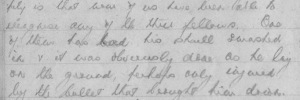 is that none of us have been able to
recognise any of the three fellows. One
of them has had his skull smashed
in & it was obviously done as he lay
on the ground, perhaps only injured
by the bullet that brought him down.